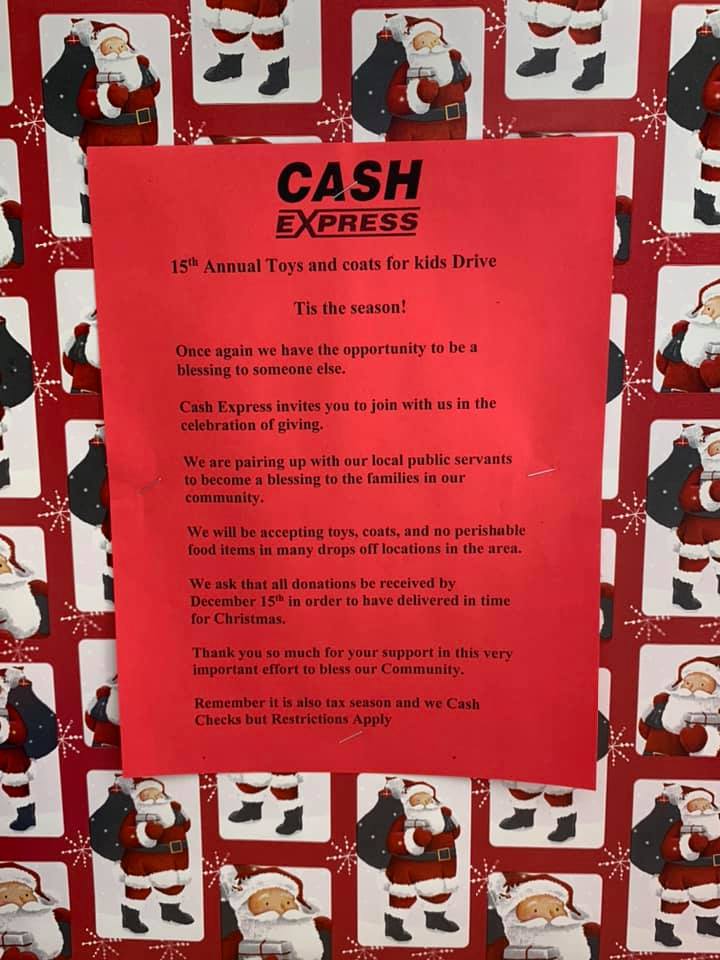 CASH
EXPRESS
15th Annual Toys and coats for kids Drive
Tis the season!
Once again we have the opportunity to be a
blessing to someone else.
Cash Express invites you to join with us in the
celebration of giving.
We are pairing up with our local public servants
to become a blessing to the families in our
community.
We will be accepting toys, coats, and no perishable
food items in many drops off locations in the area.
We ask that all donations be received by
December 15th in order to have delivered in time
for Christmas.
Thank you so much for your support in this very
important effort to bless our Community.
Remember it is also tax season and we Cash
Checks but Restrictions Apply